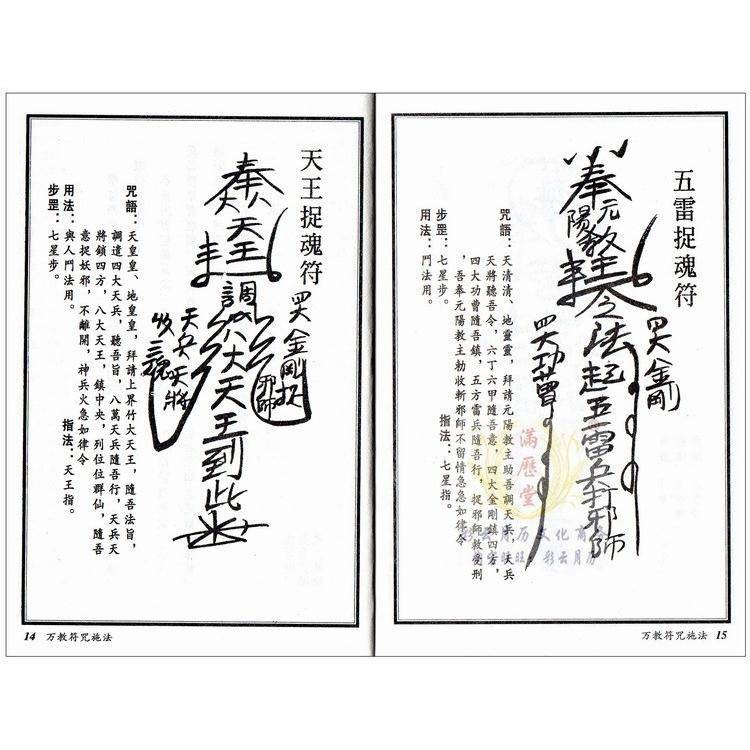 天王捉魂符
奉
天王
調八大天王到此
四大金剛捉
邪師
天兵天將
收三魂
咒語：天皇皇、地皇皇，拜請上界竹大天王，隨吾法旨，
調遣四大天兵，聽吾旨，八萬天兵隨吾行，天兵天
將鎖四方，八大天王，鎮中央，列位位群仙，隨吾
意捉妖邪，不離開，神兵火急如律令
用法：與人鬥法用。 指法：天王指。
步罡：七星步。
14 万教符咒施法
五雷捉魂符
奉
元陽教主
令法起五雷兵打邪師
四大金剛
四大功曹
咒語：天清清、地靈靈，拜請元陽教主助吾調天兵，天兵
天將聽吾令，六丁六甲隨吾意，四大金剛鎮四方，
四大功曹隨吾鎮，五方雷兵隨吾行，捉邪師教受刑
，吾奉元陽教主勅收斬邪師不留情急急如律令
步罡：七星步。 指法：七星指。
用法：鬥法用。
滿歷堂
彩云月历文化商
彩云月历
万教符咒施法 15